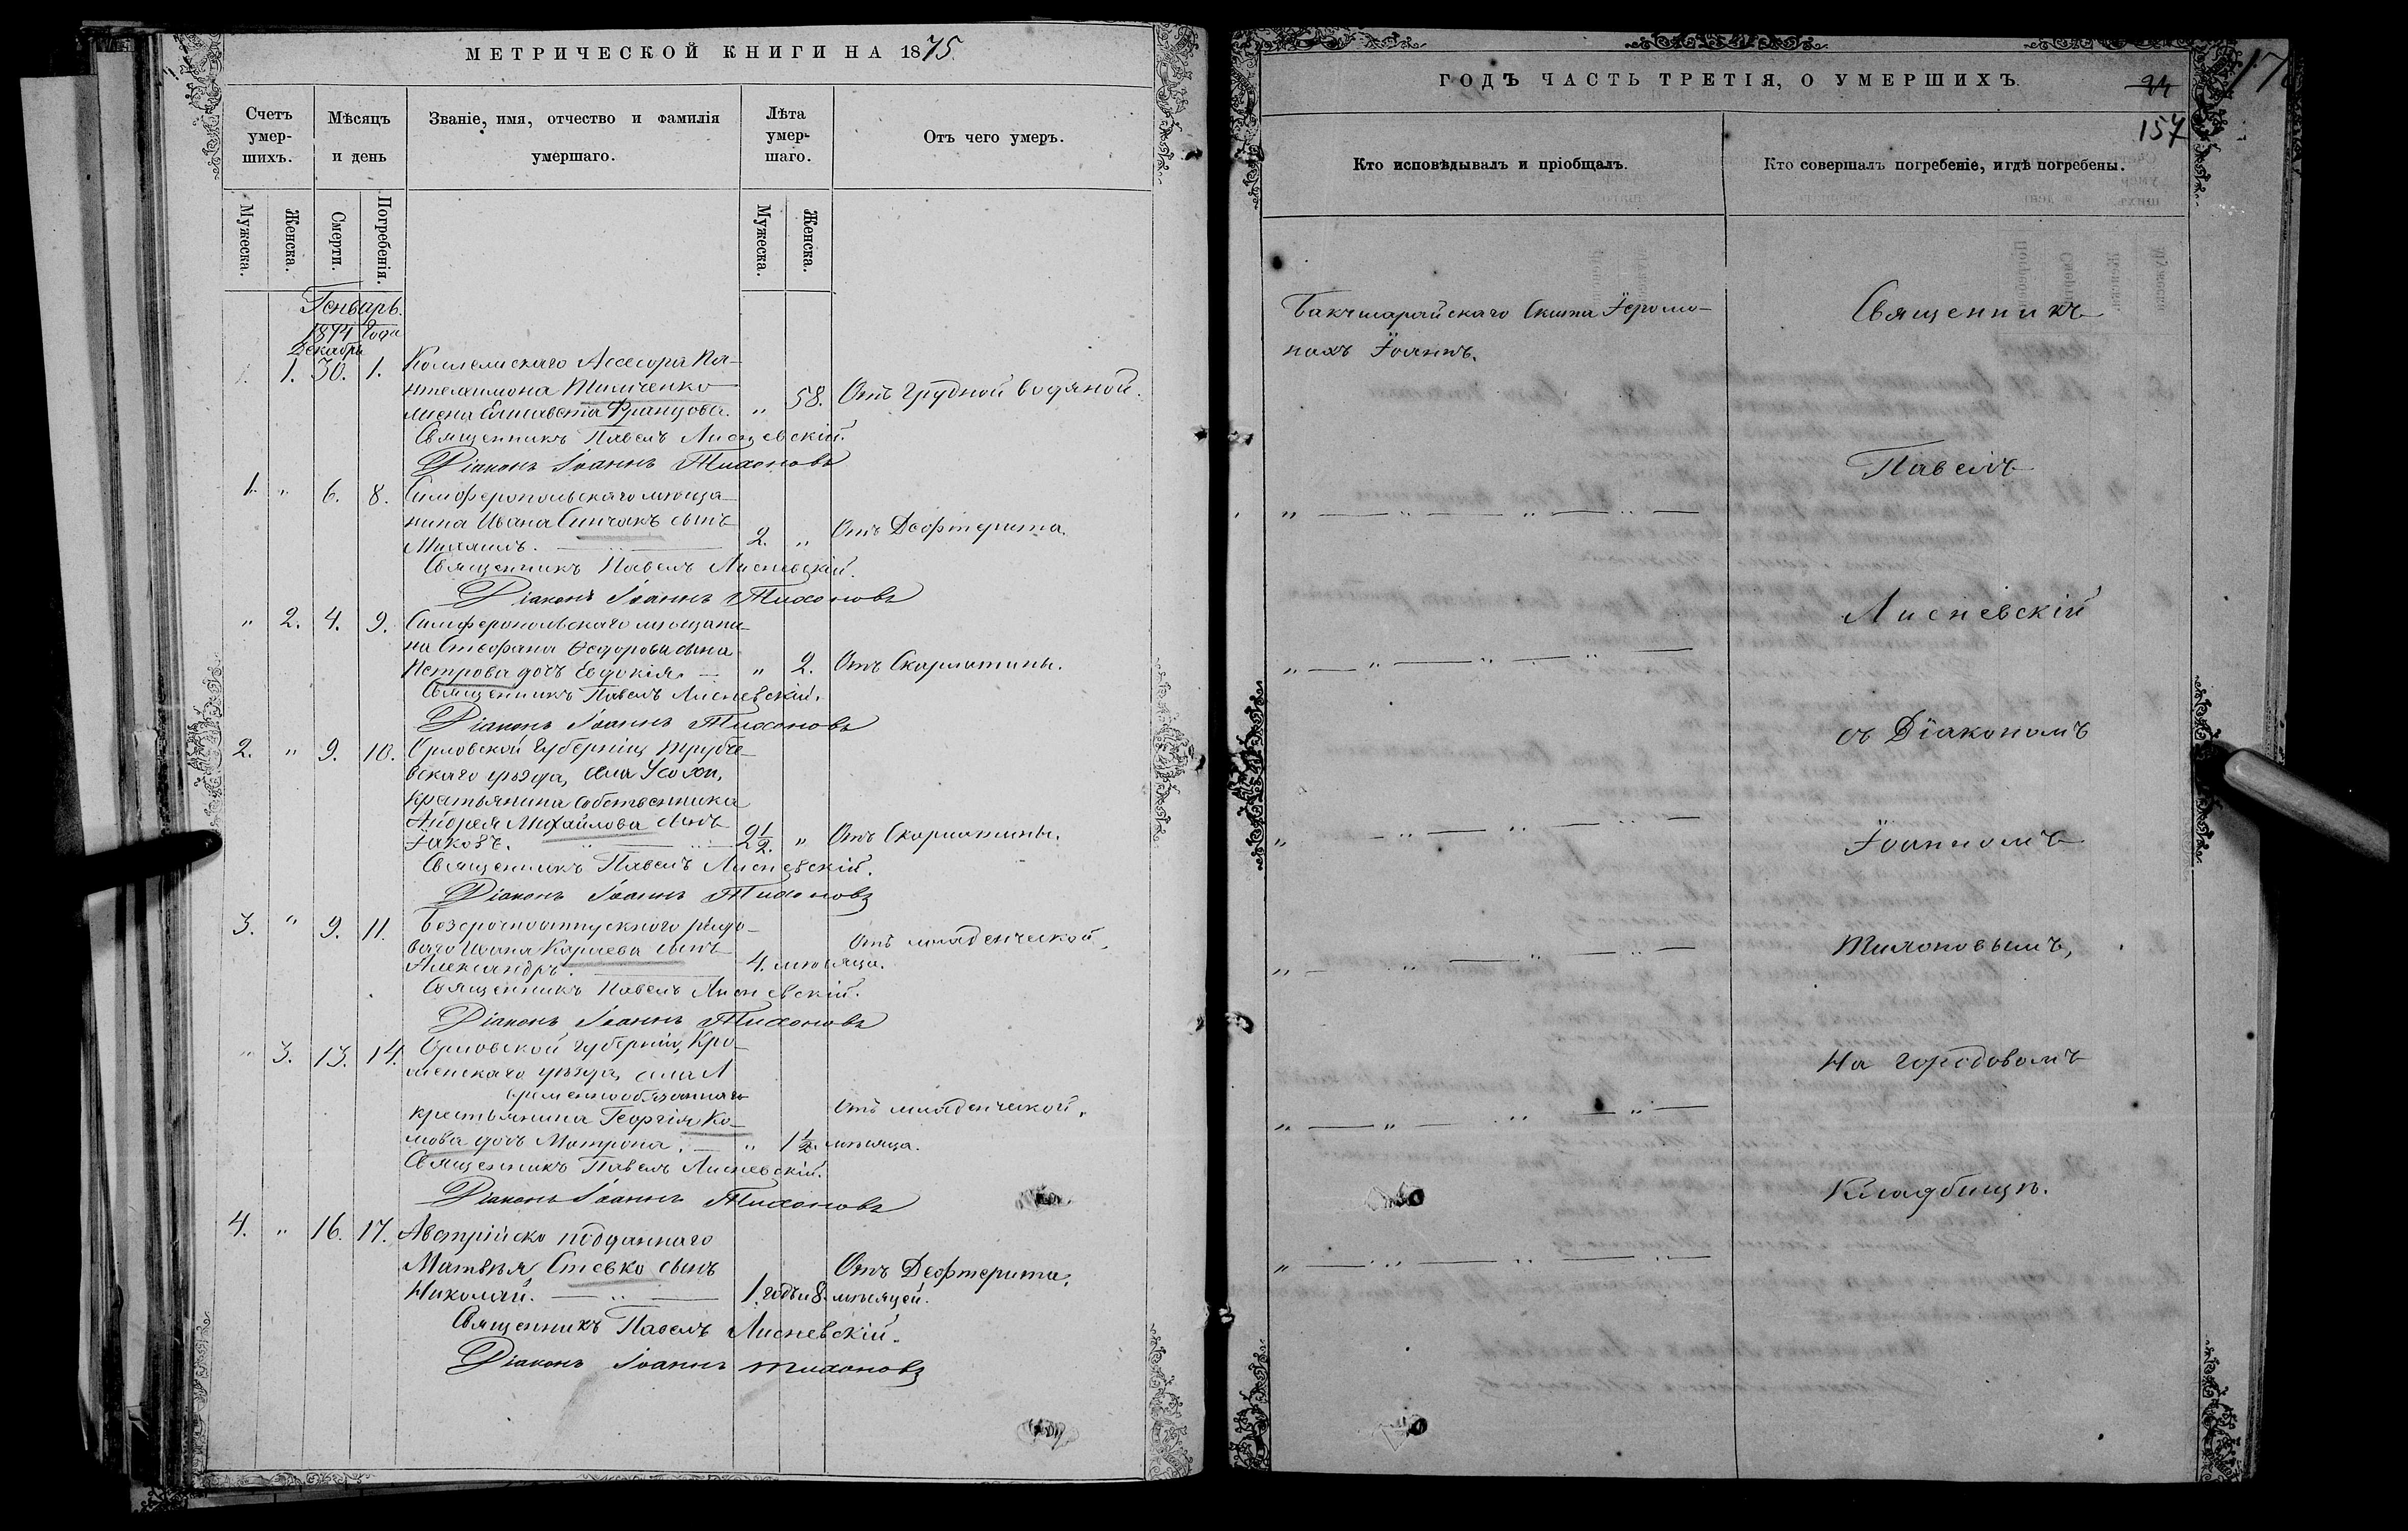 МЕТРИЧЕСКОЙ КНИГИ НА 1875.
Счетъ умер-шихъ.
Мѣсяцъ и день
Званіе, имя, отчество и фамилія умершаго.
Лѣта умер-шаго.
Отъ чего умеръ.
Мужеска.
Женска.
Смерти.
Погребенія.
Мужеска.
Женска.
Генварь.
1874 года
Декабря
1. 30. 1. Коллежскаго Ассесора Па-
нтелеимона Тимченко
жена Елисавета Францова. „ 58. Отъ грудной водяной.
Священникъ Павелъ Лисневскій.
Діаконъ Іоаннъ Тихоновъ
1. „ 6. 8. Симферопольскаго мѣща-
нина Ивана Синчакъ сынъ
Михаилъ. 2. „ Отъ Дефтерита.
Священникъ Павелъ Лисневскій.
Діаконъ Іоаннъ Тихоновъ
„ 2. 4. 9. Симферопольскаго мѣщани-
на Стефана Ѳедорова сына
Петрова дочь Евдокія. „ 2. Отъ Скарлатины.
Священникъ Павелъ Лисневскій.
Діаконъ Іоаннъ Тихоновъ
2. „ 9. 10. Орловской губерніи, Трубче-
вскаго уѣзда, села
крестьянина собственника
Андрея Михайлова сынъ
Іаковъ. 2 1/2. „ Отъ Скарлатины.
Священникъ Павелъ Лисневскій.
Діаконъ Іоаннъ Тихоновъ
3. „ 9. 11. Безсрочноотпускного рядо-
ваго Ивана сынъ Отъ младенческой.
Александръ. 4. мѣсяца.
Священникъ Павелъ Лисневскій.
Діаконъ Іоаннъ Тихоновъ
„ 3. 13. 14. Орловской губерніи, Кро-
менскаго уѣзда, села Л
временнообязаннаго
крестьянина Георгія Ко- Отъ младенческой.
мова дочь Матрона. „ 1 1/2. мѣсяца.
Священникъ Павелъ Лисневскій.
Діаконъ Іоаннъ Тихоновъ
4. „ 16. 17. Австрійско подданнаго
Матвѣя Стевко сынъ Отъ Дефтерита.
Николай. 1. годъ и 8. мѣсяцей.
Священникъ Павелъ Лисневскій.
Діаконъ Іоаннъ Тихоновъ
ГОДЪ ЧАСТЬ ТРЕТІЯ, О УМЕРШИХЪ.
157
Кто исповѣдывалъ и пріобщалъ.
Кто совершалъ погребеніе, и гдѣ погребены.
Бакчисарайскаго Скита Іеромо-
нахъ Іоаннъ.
Священникъ
Павелъ
Лисневскій
съ Діакономъ
Іоанномъ
Тихоновымъ,
На городовомъ
Кладбищѣ.